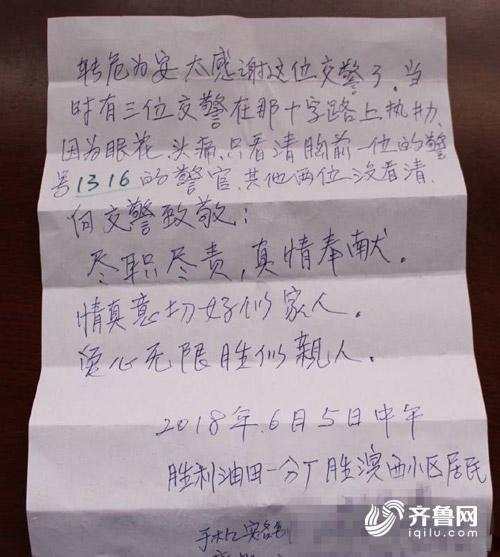 转危为安太感谢这位交警了.当
时有三位交警在那十字路上执勤.
因为眼花、头痛.只看清胸前一位的警
号1316的警官.其他两位没看清.
向交警致敬:
尽职尽责,真情奉献.
情真意切好似家人.
爱心无限胜似親人.
2018年.6月5日中午
胜利油田一分厂胜滨西小区居民
手机
齐鲁网
iqilu.com